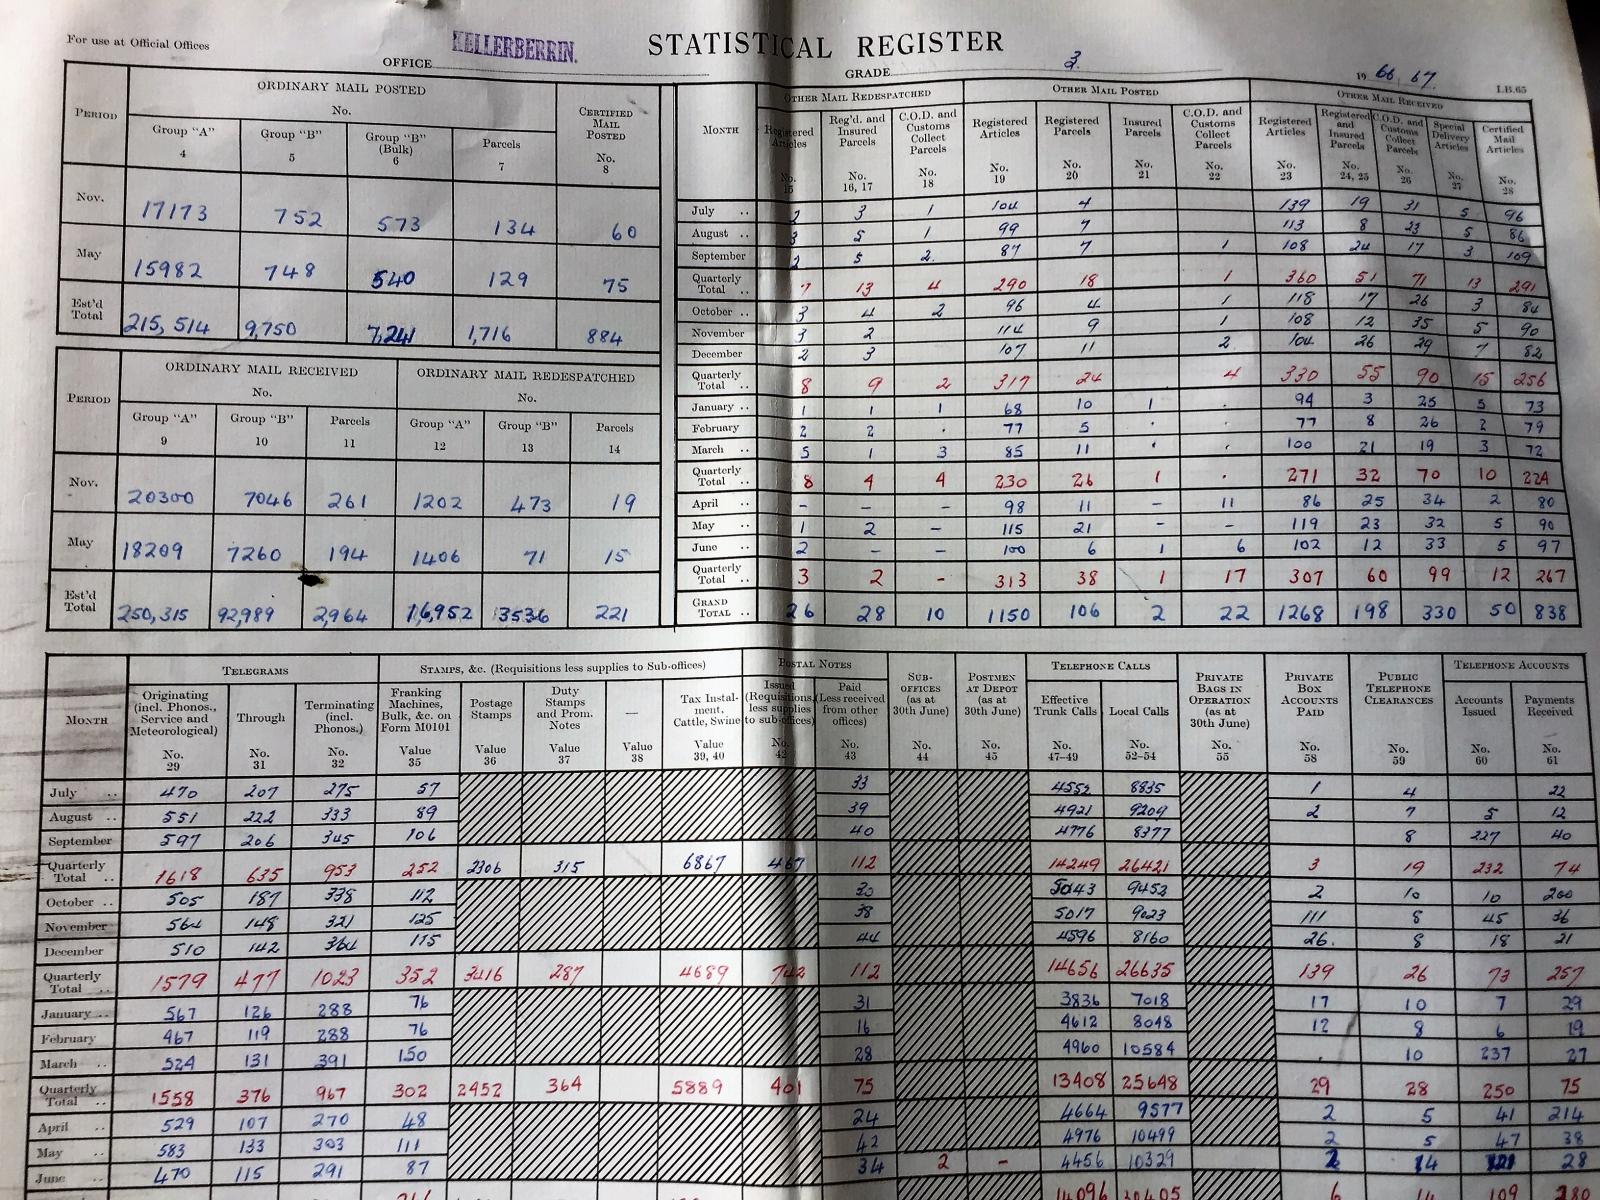 For use at Official Offices
KELLERBERRIN.
STATISTICAL REGISTER
OFFICE
GRADE 3.
19 66. 67
I.B.65
PERIOD
ORDINARY MAIL POSTED
No.
CERTIFIED MAIL POSTED
Group "A" 4
Group "B" 5
Group "B" (Bulk) 6
Parcels 7
No. 8
Nov. 17173 752 573 134 60
May 15982 748 540 129 75
Est'd Total 215,514 9,750 7,241 1,716 884
PERIOD
ORDINARY MAIL RECEIVED
No.
ORDINARY MAIL REDESPATCHED
No.
Group "A" 9
Group "B" 10
Parcels 11
Group "A" 12
Group "B" 13
Parcels 14
Nov. 20300 7046 261 1202 473 19
May 18209 7260 194 1406 71 15
Est'd Total 250,315 92,989 2,964 16,952 3536 221
MONTH
OTHER MAIL REDESPATCHED
OTHER MAIL POSTED
OTHER MAIL RECEIVED
Registered Articles No. 15
Reg'd. and Insured Parcels No. 16, 17
C.O.D. and Customs Collect Parcels No. 18
Registered Articles No. 19
Registered Parcels No. 20
Insured Parcels No. 21
C.O.D. and Customs Collect Parcels No. 22
Registered Articles No. 23
Registered and Insured Parcels No. 24, 25
C.O.D. and Customs Collect Parcels No. 26
Special Delivery Articles No. 27
Certified Mail Articles No. 28
July .. 2 3 1 104 4 139 19 31 5 96
August .. 3 5 1 99 7 113 8 23 5 86
September 2 5 2. 87 7 1 108 24 17 3 109
Quarterly Total .. 7 13 4 290 18 1 360 51 71 13 291
October .. 3 4 2 96 4 1 118 17 26 3 84
November 3 2 114 9 1 108 12 35 5 90
December 2 3 107 11 2 104 26 29 7 82
Quarterly Total .. 8 9 2 317 24 4 330 55 90 15 256
January .. 1 1 1 68 10 1 . 94 3 25 5 73
February 2 2 . 77 5 . . 77 8 26 2 79
March .. 5 1 3 85 11 . . 100 21 19 3 72
Quarterly Total .. 8 4 4 230 26 1 . 271 32 70 10 224
April .. – – – 98 11 – 11 86 25 34 2 80
May .. 1 2 – 115 21 – – 119 23 32 5 90
June .. 2 – – 100 6 1 6 102 12 33 5 97
Quarterly Total .. 3 2 - 313 38 1 17 307 60 99 12 267
GRAND TOTAL .. 26 28 10 1150 106 2 22 1268 198 330 50 838
MONTH
TELEGRAMS
STAMPS, &c. (Requisitions less supplies to Sub-offices)
POSTAL NOTES
TELEPHONE CALLS
TELEPHONE ACCOUNTS
Originating (incl. Phonos., Service and Meteorological) No. 29
Through No. 31
Terminating (incl. Phonos.) No. 32
Franking Machines, Bulk, &c. on Form M0101 Value 35
Postage Stamps Value 36
Duty Stamps and Prom. Notes Value 37
— Value 38
Tax Instalment, Cattle, Swine Value 39, 40
Issued (Requisitions, less supplies to sub-offices) No. 42
Paid (Less received from other offices) No. 43
SUB-OFFICES (as at 30th June) No. 44
POSTMEN AT DEPOT (as at 30th June) No. 45
Effective Trunk Calls No. 47–49
Local Calls No. 52–54
PRIVATE BAGS IN OPERATION (as at 30th June) No. 55
PRIVATE BOX ACCOUNTS PAID No. 58
PUBLIC TELEPHONE CLEARANCES No. 59
Accounts Issued No. 60
Payments Received No. 61
July .. 470 207 275 57 33 4552 8835 1 4 22
August .. 551 222 333 89 39 4921 9209 2 7 5 12
September 597 206 345 106 40 4776 8377 8 227 40
Quarterly Total .. 1618 635 953 252 2306 315 6867 467 112 14249 26421 3 19 232 74
October .. 505 187 338 112 30 5043 9452 2 10 10 200
November 564 148 321 125 38 5017 9023 111 8 45 36
December 510 142 364 115 44 4596 8160 26. 8 18 21
Quarterly Total .. 1579 477 1023 352 3416 287 4689 742 112 14656 26635 139 26 73 257
January .. 567 126 288 76 31 3836 7018 17 10 7 29
February 467 119 288 76 16 4612 8048 12 8 6 19
March .. 524 131 391 150 28 4960 10584 . 10 237 27
Quarterly Total .. 1558 376 967 302 2452 364 5889 401 75 13408 25648 29 28 250 75
April .. 529 107 270 48 24 4664 9577 2 5 41 214
May .. 583 133 303 111 42 4976 10499 2 5 47 38
June .. 470 115 291 87 34 2 – 4456 10329 2 14 28
14096 30405